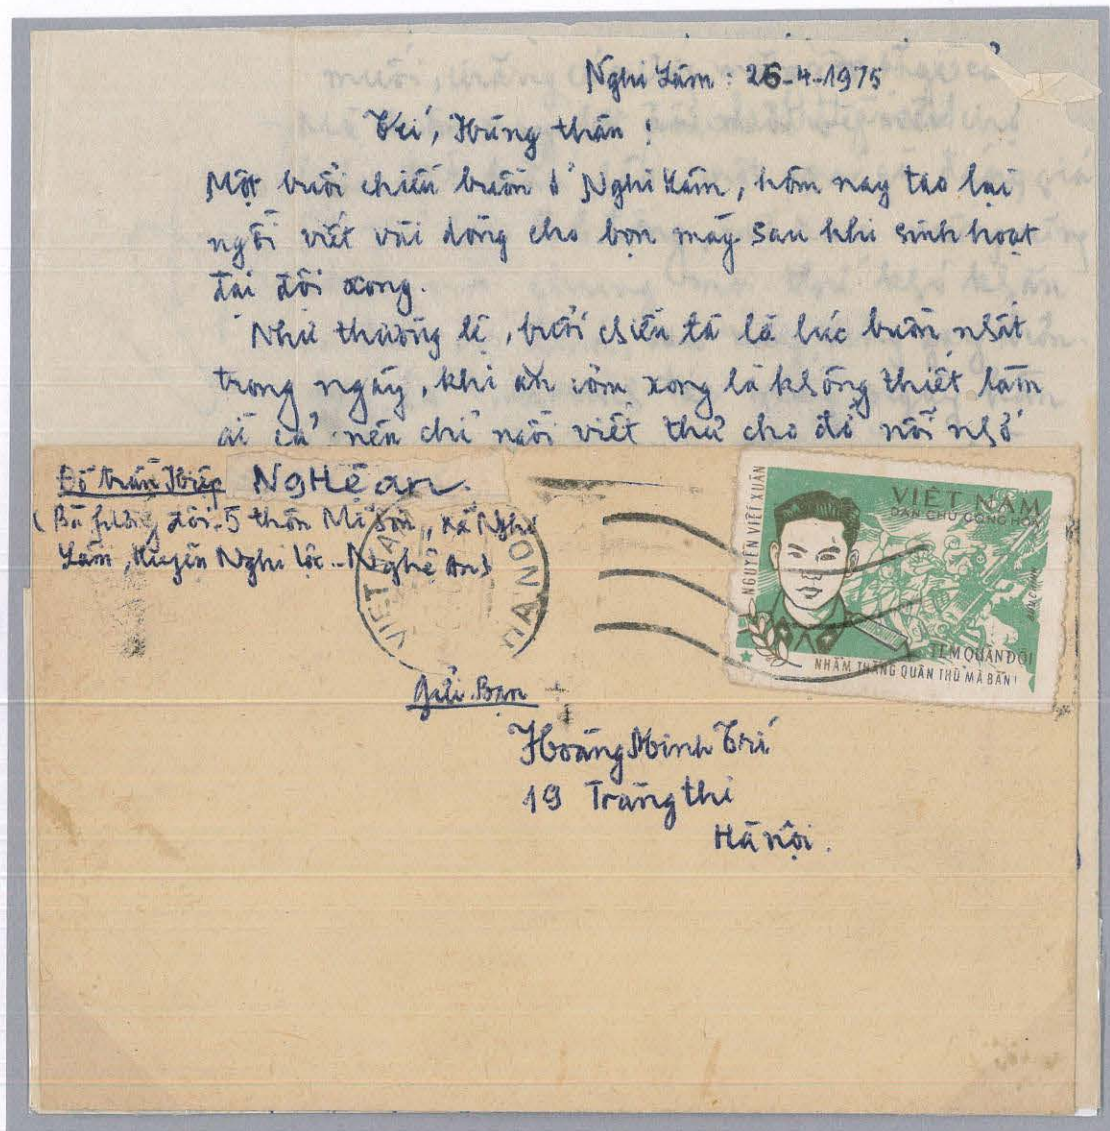 Nghi Lâm: 26-4-1975
Trí, Hùng thân!
Một buổi chiều buồn ở Nghi Lâm, hôm nay tao lại
ngồi viết vài dòng cho bọn mày sau khi sinh hoạt
đại đội xong.
Như thường lệ, buổi chiều tà là lúc buồn nhất
trong ngày, khi ăn cơm xong là không thiết làm
ai cả nên chỉ ngồi viết thư cho đỡ nỗi nhớ
Đỗ trần Hiệp Nghệ an.
đội 5 thôn Mĩ Sơn, xã Nghi
Lâm, Huyện Nghi Lộc - Nghệ An)
VIET NAM
NGUYỄN VIẾT XUÂN
VIỆT NAM
DÂN CHỦ CỘNG HÒA
TEM QUÂN ĐỘI
NHẰM THẲNG QUÂN THÙ MÀ BẮN!
Gửi Bạn
Hoàng Minh Trí
19 Tràng thi
Hà nội.